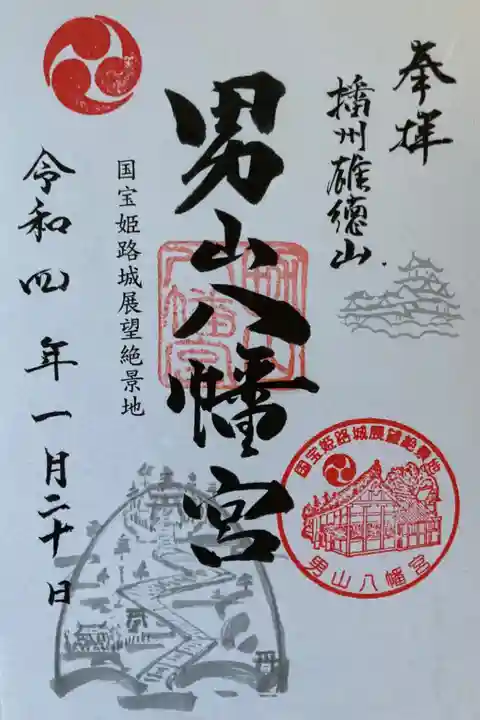 奉拝
播州雄徳山.
男山八幡宮
男山八幡宮
国宝姫路城展望絶景地
令和四年一月二十日
国宝姫路城展望絶景地
男山八幡宮